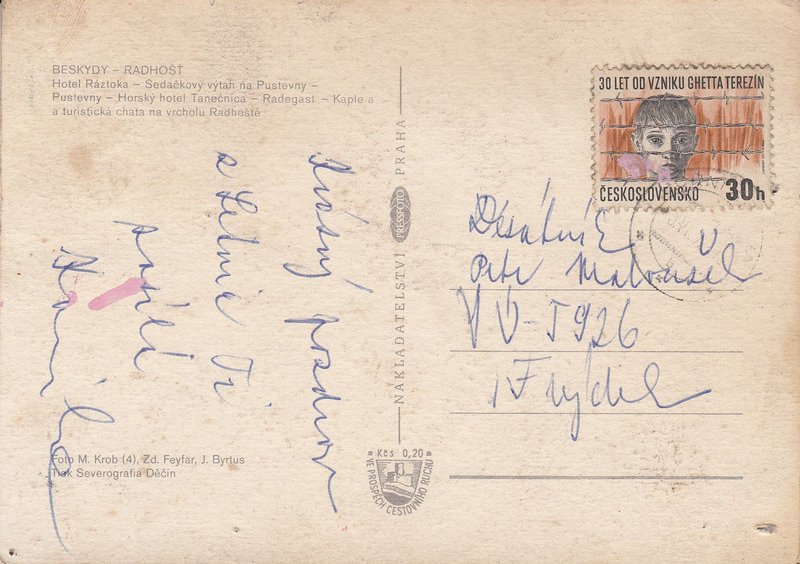 BESKYDY – RADHOŠŤ
Hotel Ráztoka – Sedačkový výtah na Pustevny –
Pustevny – Horský hotel Tanečnica – Radegast – Kaple a
a turistická chata na vrcholu Radhoště
Srdečný pozdrav
z Letnic Ti
posílá
Foto M. Krob (4), Zd. Feyfar, J. Byrtus
Tisk Severografia Děčín
NAKLADATELSTVÍ PRESSFOTO PRAHA
Kčs 0,20
VE PROSPĚCH CESTOVNÍHO RUCHU
30 LET OD VZNIKU GHETTA TEREZÍN
ČESKOSLOVENSKO 30h
Desátník
Petr
VÚ-5926